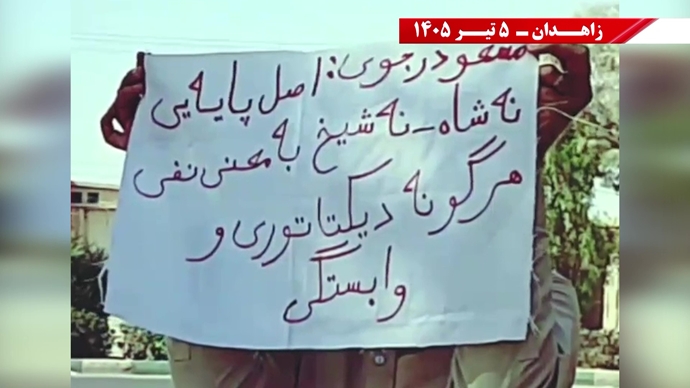 زاهدان - ۵ تیر ۱۴۰۵
مسعود رجوی: اصل پایه‌یی
نه شاه - نه شیخ به معنی نفی
هرگونه دیکتاتوری و
وابستگی